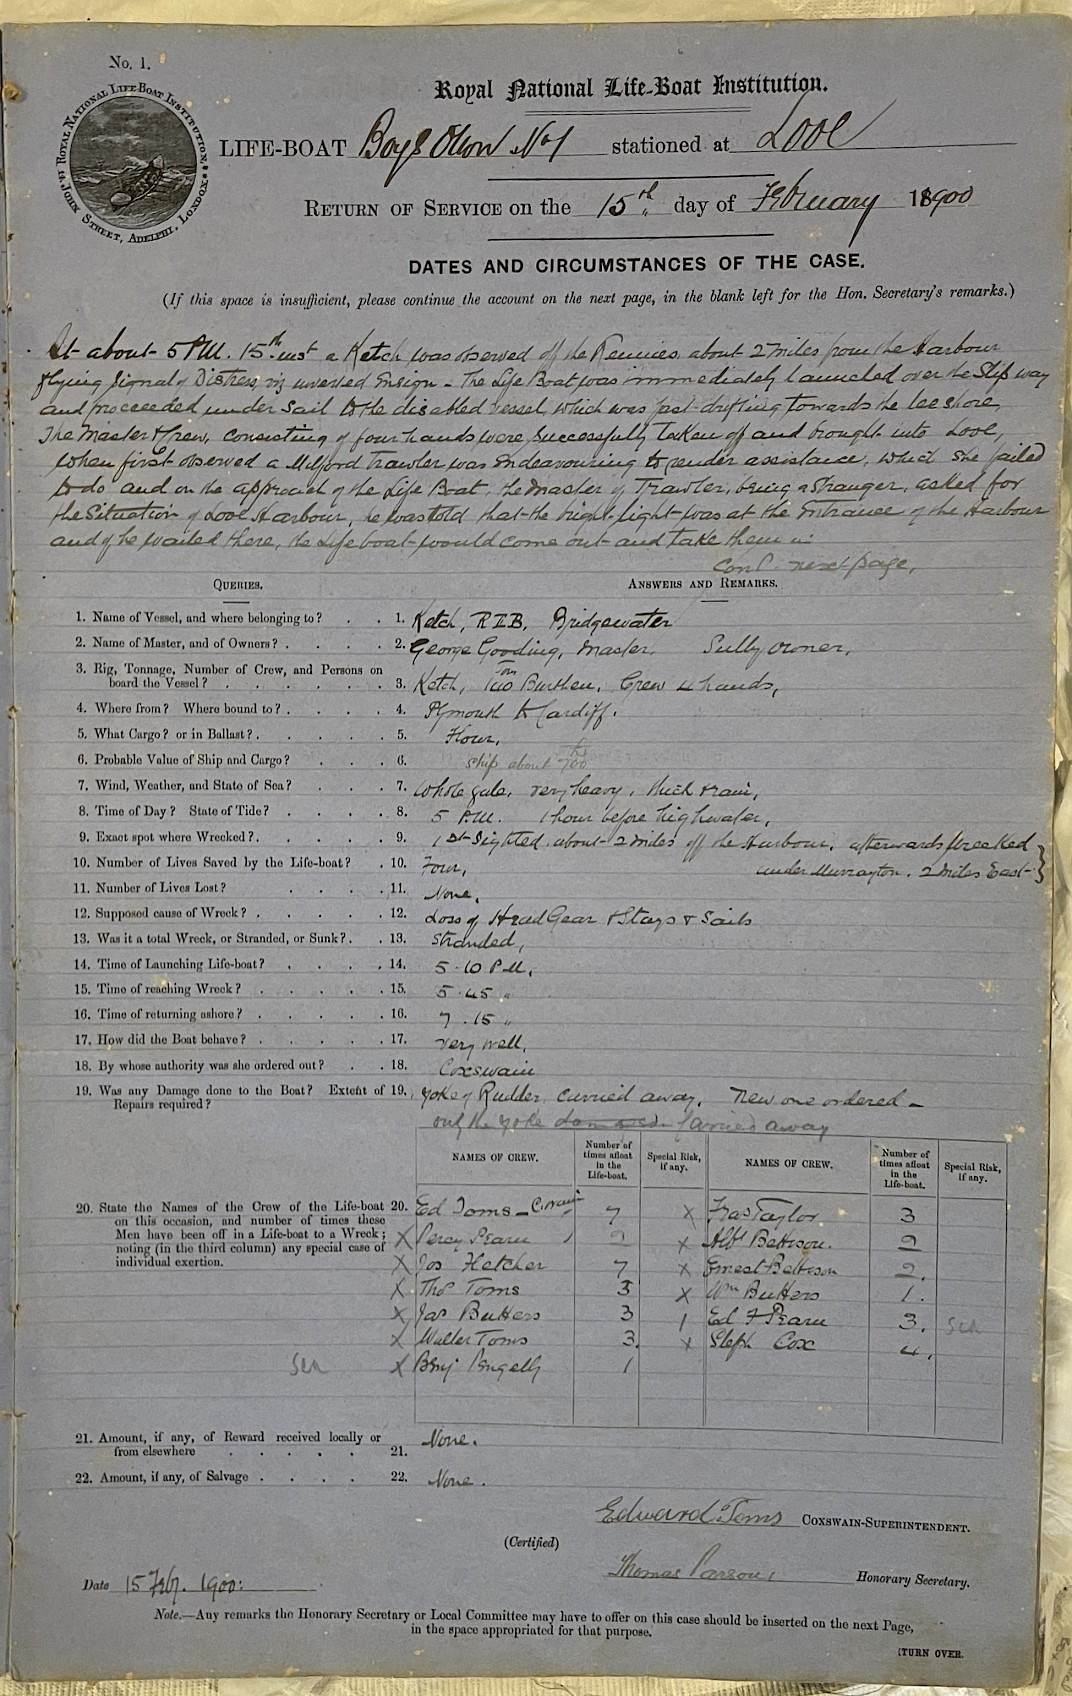 No. 1.
ROYAL NATIONAL LIFE-BOAT INSTITUTION, JOHN STREET, ADELPHI, LONDON.
Royal National Life-Boat Institution.
LIFE-BOAT Boys Own No 1 stationed at Looe
RETURN OF SERVICE on the 15th day of February 1900
DATES AND CIRCUMSTANCES OF THE CASE.
(If this space is insufficient, please continue the account on the next page, in the blank left for the Hon. Secretary's remarks.)
At about 5 P.M. 15th inst a Ketch was observed off the about 2 miles from the Harbour
flying Signal of Distress, viz inverted Ensign - The Life Boat was immediately launched over the Slip way
and proceeded under Sail to the disabled vessel, which was fast drifting towards the lee shore,
The Master & Crew, consisting of four hands were successfully taken off and brought into Looe,
When first observed a Milford Trawler was endeavouring to render assistance, which she failed
to do and on the approach of the Life Boat, the Master of Trawler, being a Stranger, asked for
the Situation of Looe Harbour, he was told that the bright light was at the Entrance of the Harbour
and if he waited there, the Life boat would come out and take them in:
Cont. next page.
QUERIES. ANSWERS AND REMARKS.
1. Name of Vessel, and where belonging to? 1. Ketch, R.T.B. Bridgewater
2. Name of Master, and of Owners? 2. George Gooding, Master. Sully owner,
3. Rig, Tonnage, Number of Crew, and Persons on board the Vessel? 3. Ketch, Ton Burthen, Crew 4 hands,
4. Where from? Where bound to? 4. Plymouth to Cardiff.
5. What Cargo? or in Ballast? 5. Flour,
6. Probable Value of Ship and Cargo? 6. Ship about 700
7. Wind, Weather, and State of Sea? 7. Whole gale, very heavy, thick & rain,
8. Time of Day? State of Tide? 8. 5 P.M. 1 hour before high water,
9. Exact spot where Wrecked? 9. 1st Sighted about 2 miles off the Harbour, afterwards Wrecked
under Murrayton, 2 miles East
10. Number of Lives Saved by the Life-boat? 10. Four,
11. Number of Lives Lost? 11. None,
12. Supposed cause of Wreck? 12. Loss of Head Gear & Stays & Sails
13. Was it a total Wreck, or Stranded, or Sunk? 13. Stranded,
14. Time of Launching Life-boat? 14. 5.10 P.M.
15. Time of reaching Wreck? 15. 5.45 "
16. Time of returning ashore? 16. 7.15 "
17. How did the Boat behave? 17. Very well,
18. By whose authority was she ordered out? 18. Coxswain
19. Was any Damage done to the Boat? Extent of Repairs required? 19. Yoke of Rudder, carried away. New one ordered -
only the yoke damaged carried away
20. State the Names of the Crew of the Life-boat on this occasion, and number of times these Men have been off in a Life-boat to a Wreck; noting (in the third column) any special case of individual exertion. 20.
NAMES OF CREW. Number of times afloat in the Life-boat. Special Risk, if any. NAMES OF CREW. Number of times afloat in the Life-boat. Special Risk, if any.
Ed Toms - Coxswain 7 X Fras Taylor 3
X Percy Pearn 2 X Albt Bettison. 2
X Jos Fletcher 7 X Ernest Bettison 2.
X Thos Toms 3 X Wm Butters 1.
X Jas Butters 3 1 Ed F Pearn 3.
X Walter Toms 3. X Steph Cox 4.
X Benj Pengelly 1
21. Amount, if any, of Reward received locally or from elsewhere 21. None.
22. Amount, if any, of Salvage 22. None.
Edward Toms COXSWAIN-SUPERINTENDENT.
(Certified)
Thomas Parson, Honorary Secretary.
Date 15 Feby. 1900:
Note.—Any remarks the Honorary Secretary or Local Committee may have to offer on this case should be inserted on the next Page,
in the space appropriated for that purpose.
[TURN OVER.